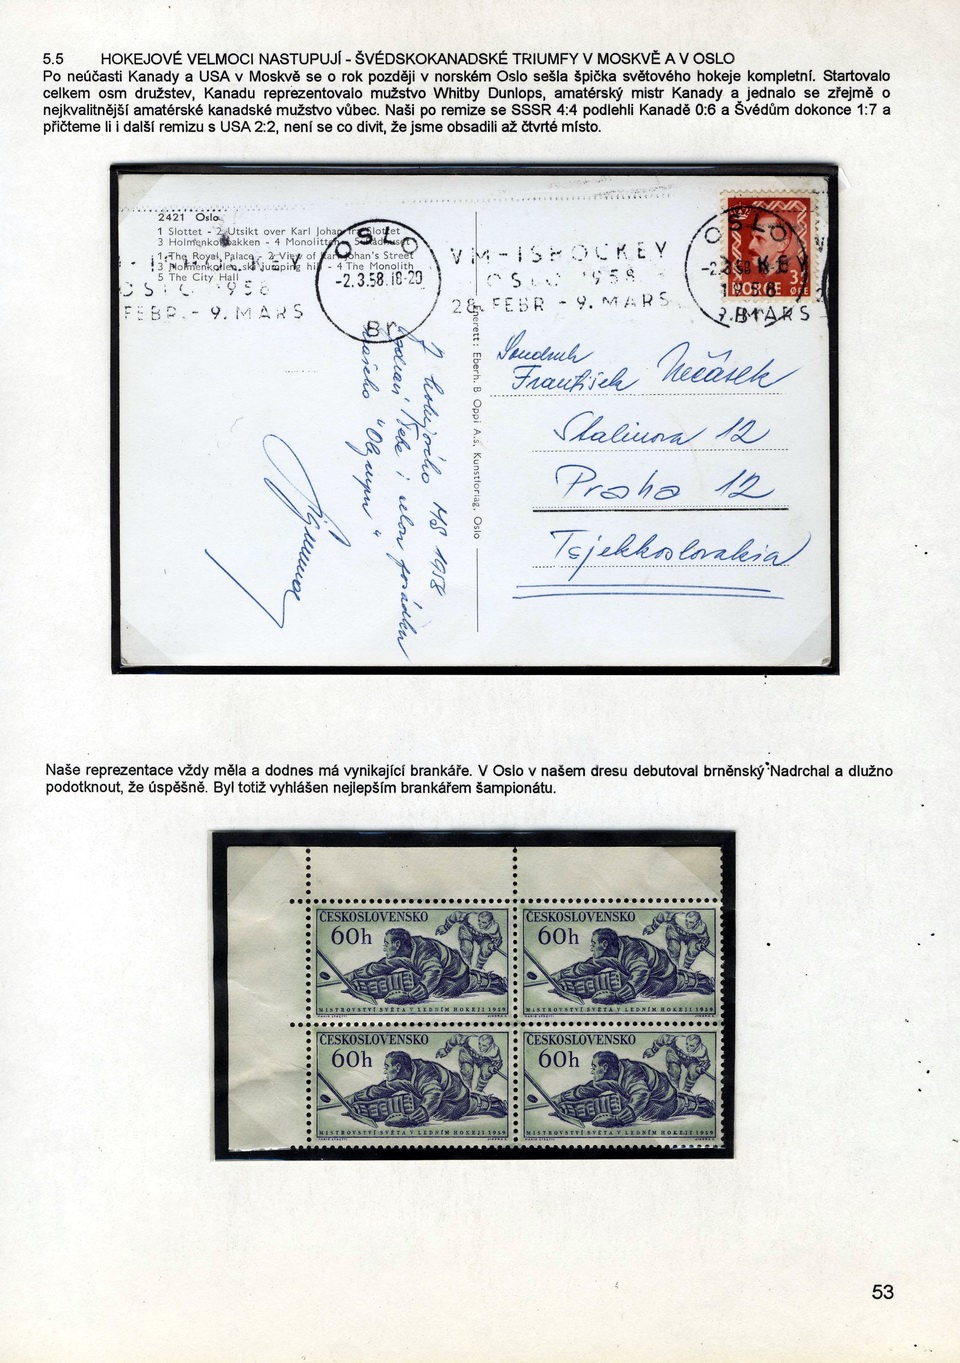 5.5 HOKEJOVÉ VELMOCI NASTUPUJÍ - ŠVÉDSKOKANADSKÉ TRIUMFY V MOSKVĚ A V OSLO
Po neúčasti Kanady a USA v Moskvě se o rok později v norském Oslo sešla špička světového hokeje kompletní. Startovalo
celkem osm družstev, Kanadu reprezentovalo mužstvo Whitby Dunlops, amatérský mistr Kanady a jednalo se zřejmě o
nejkvalitnější amatérské kanadské mužstvo vůbec. Naši po remize se SSSR 4:4 podlehli Kanadě 0:6 a Švédům dokonce 1:7 a
přičteme li i další remizu s USA 2:2, není se co divit, že jsme obsadili až čtvrté místo.
2421 Oslo
1 Slottet - 2 Utsikt over Karl Johan fra Slottet
3 Holmenkollbakken - 4 Monolitten - 5 Rådhuset
1 The Royal Palace - 2 View of Karl Johan's Street
3 Holmenkollen, ski jumping hill - 4 The Monolith
5 The City Hall
OSLO
-2.3.58.18-20
Br
VM-ISHOCKEY
OSLO 1958
28. FEBR - 9. MARS
NORGE
ØRE
Z hokejového MS 1958
zdraví Tebe i celou posádku
našeho "Olympu"
Enerett: Eberh. B Oppi A.s, Kunstforlag, Oslo
Soudruh
František Nečásek
Stalinova 12
Praha 12
Tsjekkoslovakia
Naše reprezentace vždy měla a dodnes má vynikající brankáře. V Oslo v našem dresu debutoval brněnský Nadrchal a dlužno
podotknout, že úspěšně. Byl totiž vyhlášen nejlepším brankářem šampionátu.
ČESKOSLOVENSKO
60h
MISTROVSTVÍ SVĚTA V LEDNÍM HOKEJI 1959
ČESKOSLOVENSKO
60h
MISTROVSTVÍ SVĚTA V LEDNÍM HOKEJI 1959
ČESKOSLOVENSKO
60h
MISTROVSTVÍ SVĚTA V LEDNÍM HOKEJI 1959
ČESKOSLOVENSKO
60h
MISTROVSTVÍ SVĚTA V LEDNÍM HOKEJI 1959
53